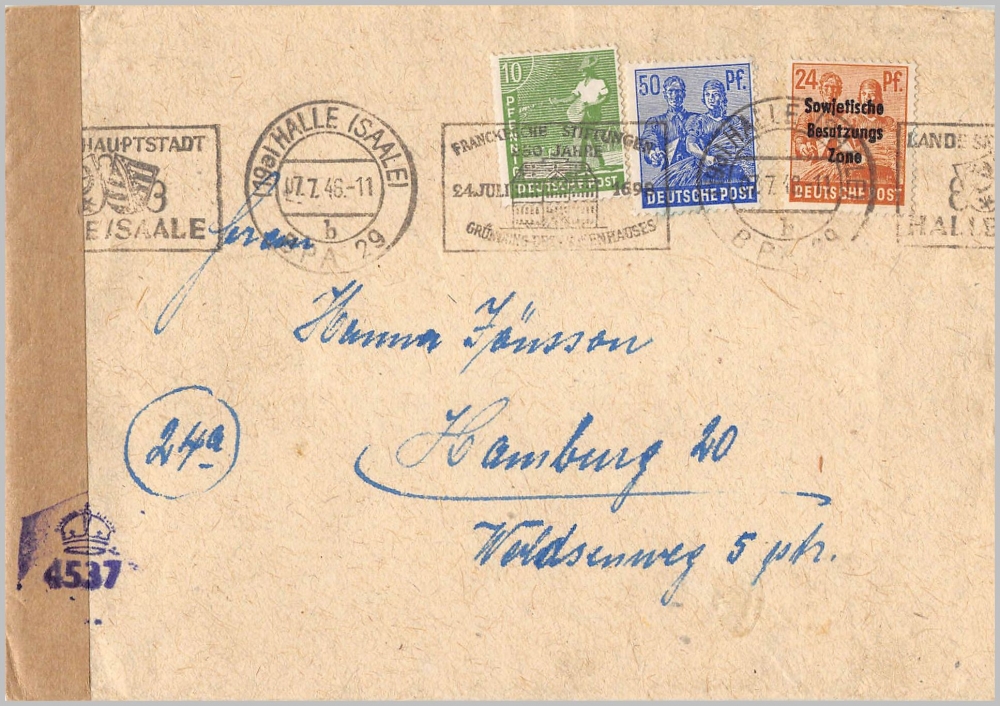 HAUPTSTADT
E/SAALE
(19a) HALLE (SAALE)
07.7.48.-11
b
BPA 29
FRANCKESCHE STIFTUNGEN
250 JAHRE
24. JULI 1698
GRÜNDUNG DES WAISENHAUSES
10
PFENNIG
DEUTSCHE POST
50 Pf.
DEUTSCHE POST
24 Pf.
Sowjetische
Besatzungs
Zone
DEUTSCHE POST
HALLE
7.7.48.-11
b
BPA 29
LANDESH
HALLE
Hanna Jönsson
24a
Hamburg 20
Woldsenweg 5 ptr.
4537